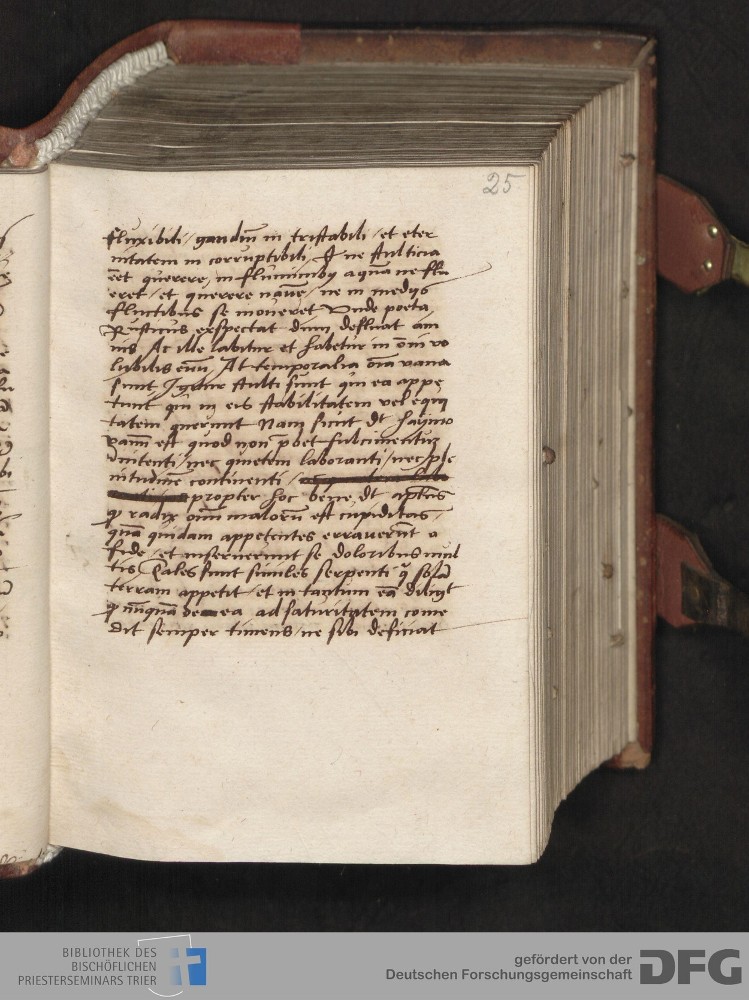 25
fluxibili / gaudiū in tristabili / et eter
nitatem in corruptibili, ne stulticia
eēt querere, in fluminibꝫ aquā ne flu
eret / et querere nauē / ne in medijs
fluctibus se moueret Vnde poeta,
Rusticus exspectat dum defluat am
nis Ac ille labitur et habetur in oīm vo
lubilis euū, At temporalia oīa vana
sunt Igitur stulti sunt qui ea appe
tunt qui in eis stabilitatem vel equi
tatem querunt Nam sicut dt haymo
vanū est quod non pōet fulcimentum
innitenti / nec quietem laboranti / nec ple
nitudinē continenti /
propter hoc bene dt aptūs
ꝙ radix oīm malorū est cupiditas /
quā quidam appetentes errauerūt a
fide / et inseruerunt se doloribus mul
tis Tales sunt similes serpenti q̄ solā
terram appetit / et in tantum eā diligit
ꝙ nūquā de ea ad saturitatem come
dit semper timens / ne sibi deficiat
BIBLIOTHEK DES
BISCHÖFLICHEN
PRIESTERSEMINARS TRIER
gefördert von der
Deutschen Forschungsgemeinschaft
DFG